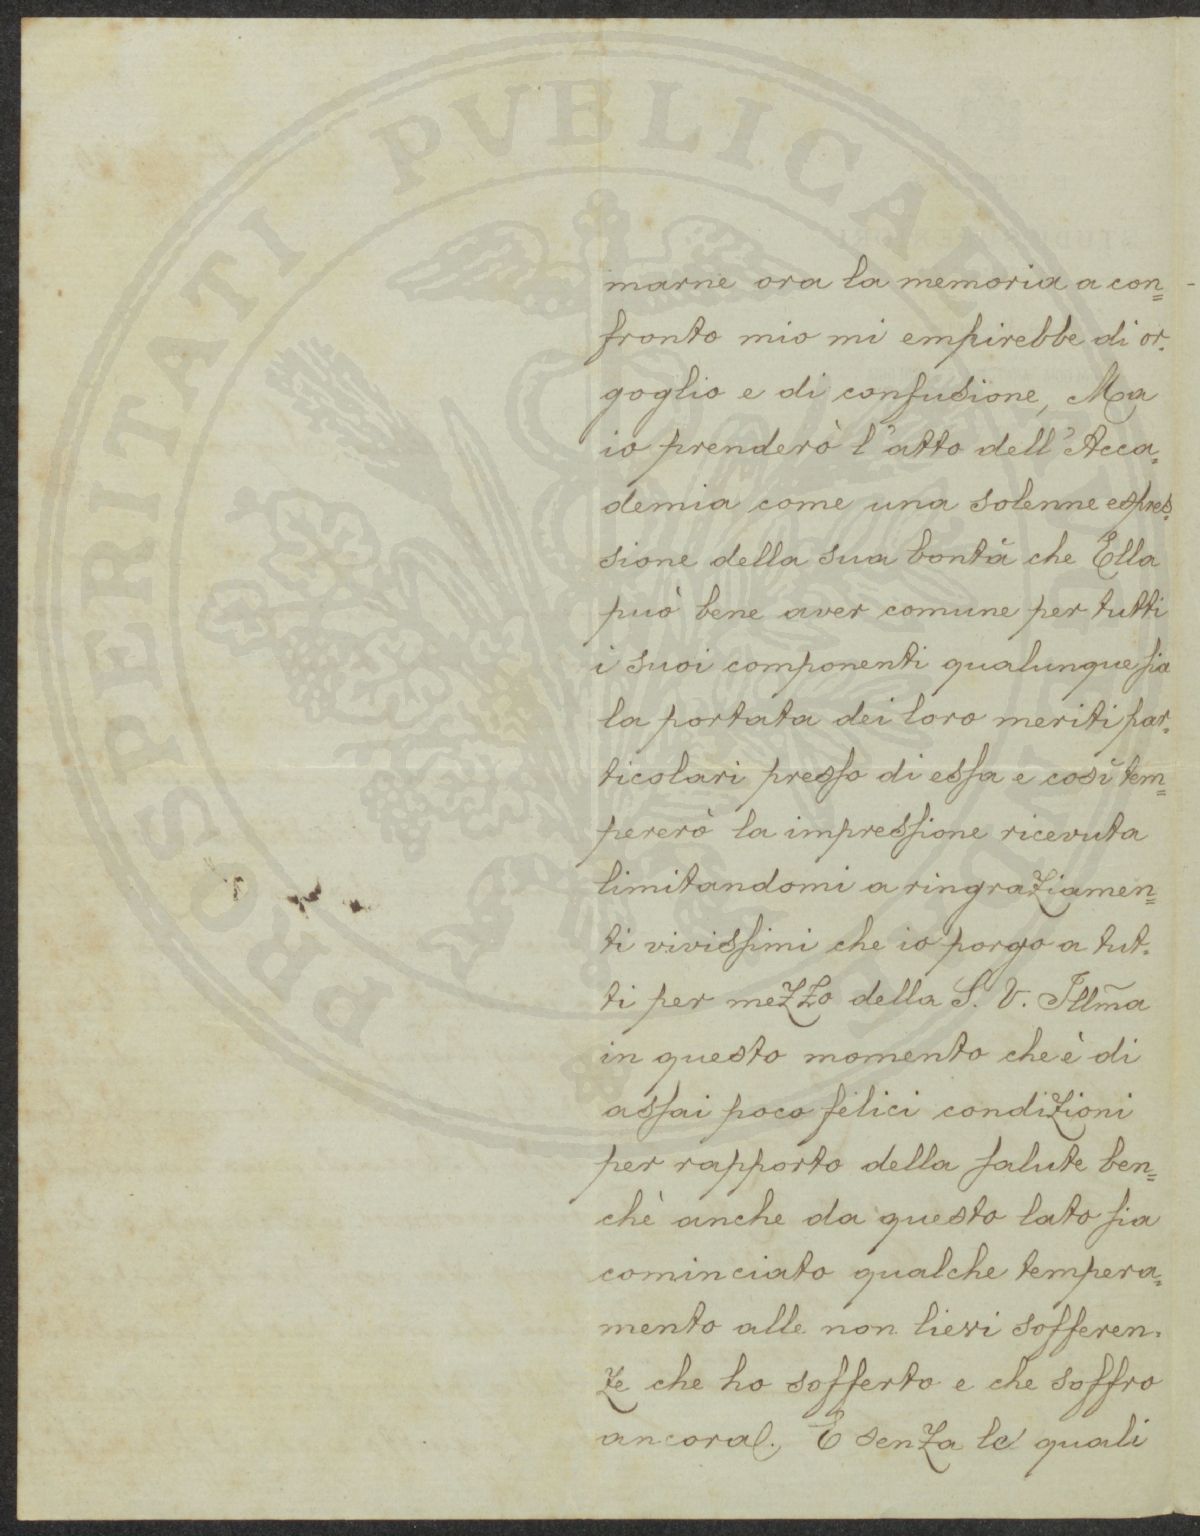 PROSPERITATI PVBLICAE
marne ora la memoria a con=
fronto mio mi empirebbe di or.
goglio e di confusione, Ma
io prenderò l'atto dell'Acca=
demia come una solenne espres=
sione della sua bontà che Ella
può bene aver comune per tutti
i suoi componenti qualunque sia
la portata dei loro meriti par=
ticolari presso di essa e così tem=
pererò la impressione ricevuta
limitandomi a ringraziamen=
ti vivissimi che io porgo a tut=
ti per mezzo della S. V. Illm̃a
in questo momento che è di
assai poco felici condizioni
per rapporto della salute ben=
chè anche da questo lato sia
cominciato qualche tempera=
mento alle non lievi sofferen=
ze che ho sofferto e che soffro
ancora. E senza le quali